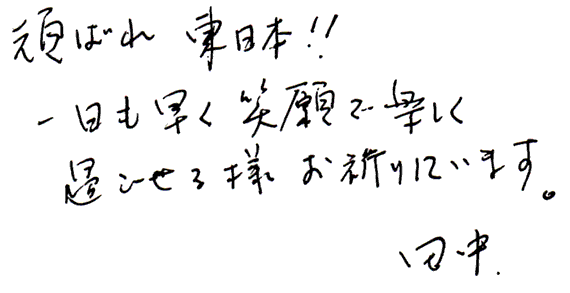 頑ばれ 東日本!!
一日も早く笑顔で楽しく
過ごせる様お祈りしています。
田中.